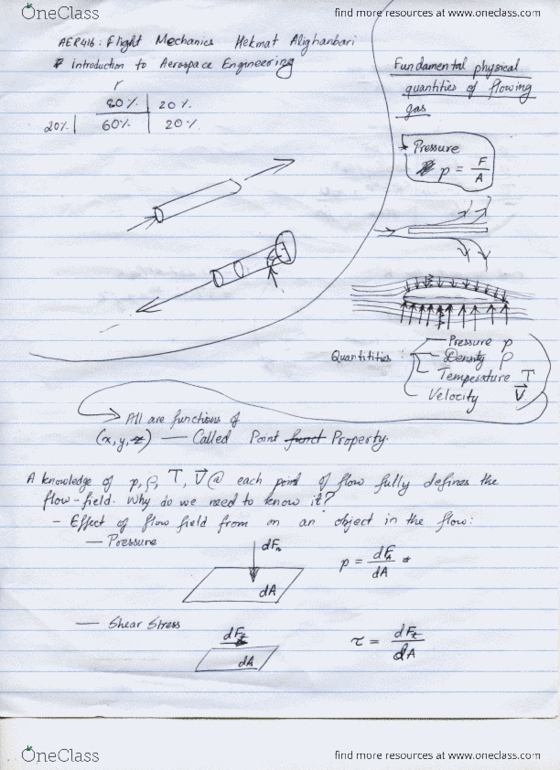 OneClass
find more resources at www.oneclass.com
AER416: Flight Mechanics Hekmat Alighanbari
Introduction to Aerospace Engineering
r
80% 20%
20% 60% 20%
Fundamental physical
quantities of flowing
gas
Pressure
p = F/A
Quantitities:
Pressure p
Density ρ
Temperature T
Velocity V⃗
All are functions of
(x, y, z) — Called Point funct Property.
A knowledge of p, ρ, T, V⃗ @ each point of flow fully defines the
flow-field. Why do we need to know it?
- Effect of flow field from on an object in the flow:
— Pressure
dFn
dA
p = dFn/dA
— Shear Stress
dFt
dA
τ = dFt/dA
OneClass
find more resources at www.oneclass.com